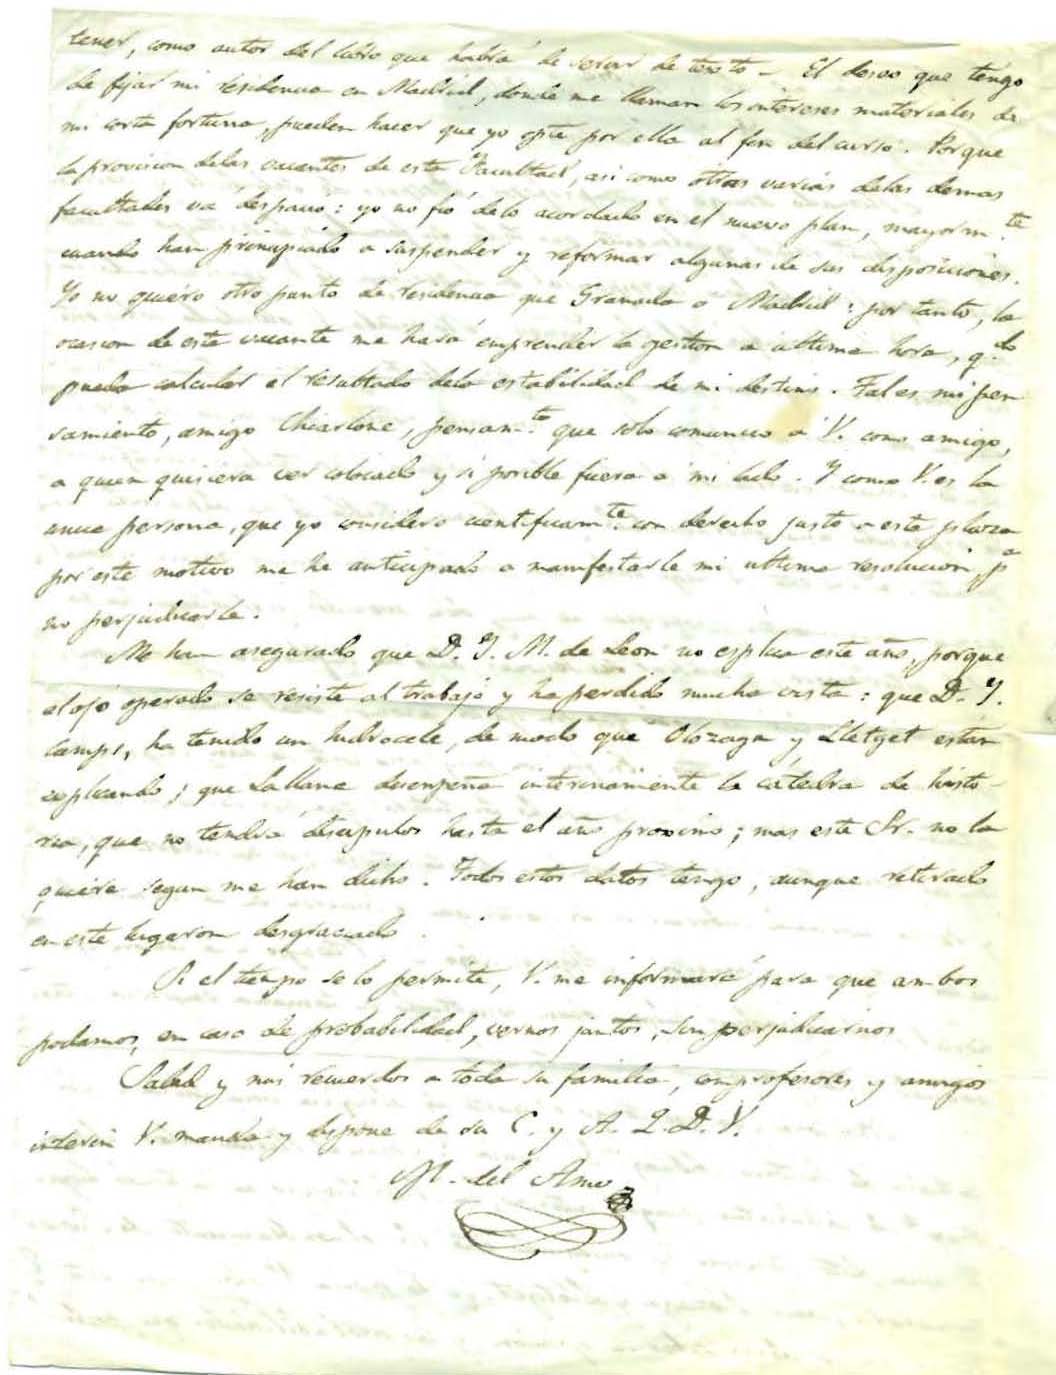 tener, como autor del libro que habrá de servir de testo – El deseo que tengo
de fijar mi residencia en Madrid, donde me llaman los intereses materiales de
mi corta fortuna, pueden hacer que yo opte por ella al fin del curso. Porque
la provision de las vacantes de esta Facultad, asi como otras varias de las demas
facultades va despacio: yo no fio de lo acordado en el nuevo plan, mayorm.te
cuando han principiado a suspender y reformar algunas de sus disposiciones.
Yo no quiero otro punto de residencia que Granada o Madrid: por tanto, la
ocasion de esta vacante me hará emprender la gestion a ultima hora, q.do
pueda calcular el resultado de la estabilidad de mi destino. Tal es mi pen
samiento, amigo Chiarlone, pensam.to que solo comunico a V. como amigo,
a quien quisiera ver colocado y si posible fuera a mi lado. Y como V. es la
unica persona, que yo considero cientificam.te con derecho justo a esta plaza
por este motivo me he anticipado a manifestarle mi ultima resolucion, p.a
no perjudicarle.
Me han asegurado que D. J. M. de Leon no esplica este año, porque
el ojo operado se resiste al trabajo y ha perdido mucha vista: que D. J.
Camps, ha tenido un hidrocele, de modo que Olozaga y Lletget estan
esplicando; que Lallana desempeña interinamente la cátedra de histo-
ria, que no tendrá discipulos hasta el año proximo; mas este Sr. no la
quiere segun me han dicho. Todos estos datos tengo, aunque retirado
en este lugaron desgraciado.
Si el tiempo se lo permite, V. me informará para que ambos
podamos, en caso de probabilidad, vernos juntos, sin perjudicarnos
Salud y mis recuerdos a toda su familia, comprofesores y amigos
interin V. manda y dispone de su C. y A. Q. B. V.
M. del Amo